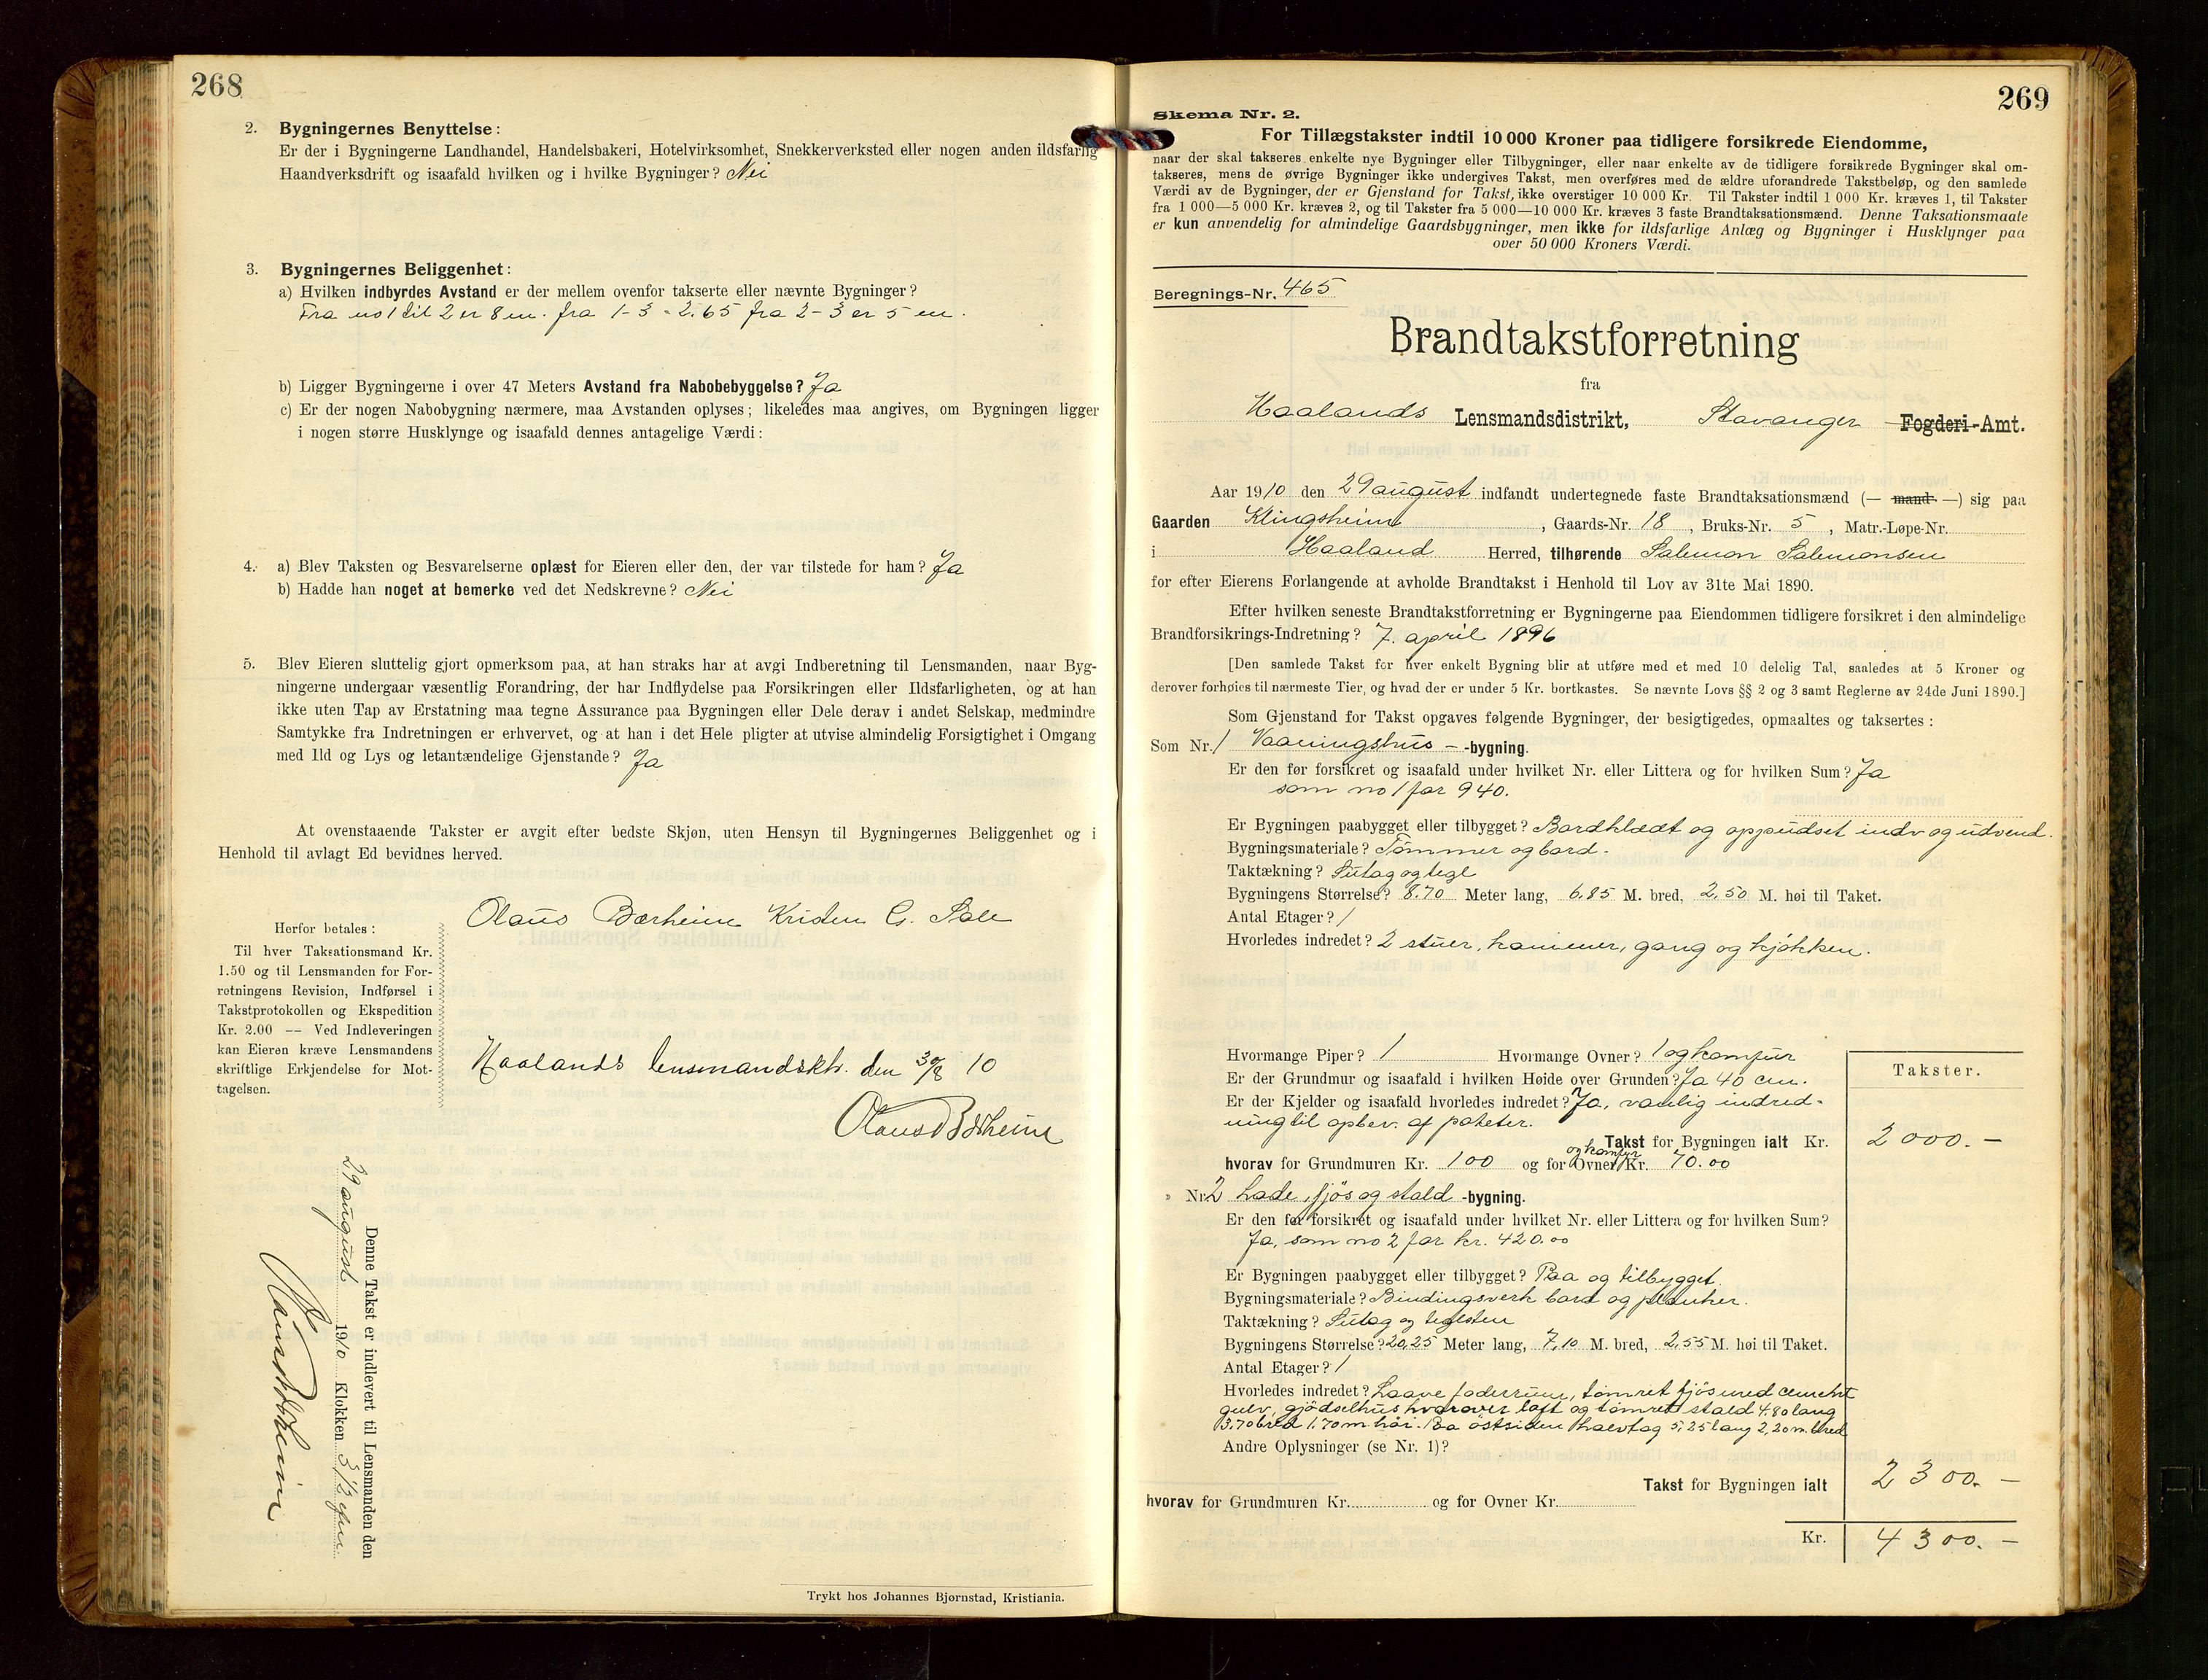 268
2. Bygningernes Benyttelse:
Er der i Bygningerne Landhandel, Handelsbakeri, Hotelvirksomhet, Snekkerverksted eller nogen anden ildsfarlig
Haandverksdrift og isaafald hvilken og i hvilke Bygninger? Nei
3. Bygningernes Beliggenhet:
a) Hvilken indbyrdes Avstand er der mellem ovenfor takserte eller nævnte Bygninger?
Fra no 1 til 2 er 8 m. fra 1-3 = 2.65 fra 2-3 er 5 m.
b) Ligger Bygningerne i over 47 Meters Avstand fra Nabobebyggelse? Ja
c) Er der nogen Nabobygning nærmere, maa Avstanden oplyses; likeledes maa angives, om Bygningen ligger
i nogen større Husklynge og isaafald dennes antagelige Værdi:
4. a) Blev Taksten og Besvarelserne oplæst for Eieren eller den, der var tilstede for ham? Ja
b) Hadde han noget at bemerke ved det Nedskrevne? Nei
5. Blev Eieren sluttelig gjort opmerksom paa, at han straks har at avgi Indberetning til Lensmanden, naar Byg-
ningerne undergaar væsentlig Forandring, der har Indflydelse paa Forsikringen eller Ildsfarligheten, og at han
ikke uten Tap av Erstatning maa tegne Assurance paa Bygningen eller Dele derav i andet Selskap, medmindre
Samtykke fra Indretningen er erhvervet, og at han i det Hele pligter at utvise almindelig Forsigtighet i Omgang
med Ild og Lys og letantændelige Gjenstande? Ja
At ovenstaaende Takster er avgit efter bedste Skjøn, uten Hensyn til Bygningernes Beliggenhet og i
Henhold til avlagt Ed bevidnes herved.
Olaus Bærheim Kristen G. Sele
Herfor betales:
Til hver Taksationsmand Kr.
1.50 og til Lensmanden for For-
retningens Revision, Indførsel i
Takstprotokollen og Ekspedition
Kr. 2.00 — Ved Indleveringen
kan Eieren kræve Lensmandens
skriftlige Erkjendelse for Mot-
tagelsen.
Haalands lensmandsktr. den 30/8 10
Olaus Bærheim
Denne Takst er indlevert til Lensmanden den
29 august 1910 Klokken 3 1/2 efm.
Olaus Bærheim
Trykt hos Johannes Bjørnstad, Kristiania.
269
Skema Nr. 2.
For Tillægstakster indtil 10 000 Kroner paa tidligere forsikrede Eiendomme,
naar der skal takseres enkelte nye Bygninger eller Tilbygninger, eller naar enkelte av de tidligere forsikrede Bygninger skal om-
takseres, mens de øvrige Bygninger ikke undergives Takst, men overføres med de ældre uforandrede Takstbeløp, og den samlede
Værdi av de Bygninger, der er Gjenstand for Takst, ikke overstiger 10 000 Kr. Til Takster indtil 1 000 Kr. kræves 1, til Takster
fra 1 000—5 000 Kr. kræves 2, og til Takster fra 5 000—10 000 Kr. kræves 3 faste Brandtaksationsmænd. Denne Taksationsmaate
er kun anvendelig for almindelige Gaardsbygninger, men ikke for ildsfarlige Anlæg og Bygninger i Husklynger paa
over 50 000 Kroners Værdi.
Beregnings-Nr. 465
Brandtakstforretning
fra
Haalands Lensmandsdistrikt, Stavanger Fogderi-Amt.
Aar 1910 den 29 august indfandt undertegnede faste Brandtaksationsmænd (— mand —) sig paa
Gaarden Klingsheim, Gaards-Nr. 18, Bruks-Nr. 5, Matr.-Løpe-Nr.
i Haaland Herred, tilhørende Salemon Salemonsen
for efter Eierens Forlangende at avholde Brandtakst i Henhold til Lov av 31te Mai 1890.
Efter hvilken seneste Brandtakstforretning er Bygningerne paa Eiendommen tidligere forsikret i den almindelige
Brandforsikrings-Indretning? 7. april 1896
[Den samlede Takst for hver enkelt Bygning blir at utføre med et med 10 delelig Tal, saaledes at 5 Kroner og
derover forhøies til nærmeste Tier, og hvad der er under 5 Kr. bortkastes. Se nævnte Lovs §§ 2 og 3 samt Reglerne av 24de Juni 1890.]
Som Gjenstand for Takst opgaves følgende Bygninger, der besigtigedes, opmaaltes og taksertes:
Som Nr. 1 Vaaningshus - -bygning.
Er den før forsikret og isaafald under hvilket Nr. eller Littera og for hvilken Sum? Ja
som no 1 for 940.
Er Bygningen paabygget eller tilbygget? Bordklædt og oppudset indv og udvend.
Bygningsmateriale? Tömmer og bord.
Taktækning? Sutag og tegl
Bygningens Størrelse? 8.70 Meter lang, 6,85 M. bred, 2,50 M. høi til Taket.
Antal Etager? 1
Hvorledes indredet? 2 stuer, kammer, gang og kjøkken.
Hvormange Piper? 1 Hvormange Ovner? 1 og komfur
Er der Grundmur og isaafald i hvilken Høide over Grunden? Ja 40 cm.
Er der Kjelder og isaafald hvorledes indredet? Ja, vanlig indred-
ning til opbev. af poteter.
Takster.
Takst for Bygningen ialt Kr. 2000.-
hvorav for Grundmuren Kr. 100 og for Ovner og komfur Kr. 70.00
» Nr 2 Lade, fjös og stald -bygning.
Er den før forsikret og isaafald under hvilket Nr. eller Littera og for hvilken Sum?
Ja, som no 2 for kr. 420.00
Er Bygningen paabygget eller tilbygget? Paa og tilbygget.
Bygningsmateriale? Bindingsverk bord og planker.
Taktækning? Sutag og teglsten
Bygningens Størrelse? 20,25 Meter lang, 7,10 M. bred, 2,55 M. høi til Taket.
Antal Etager? 1
Hvorledes indredet? Laave foderrum, tömret fjös med cement
gulv, gjödselhus hvorover loft og tömret stald 4.80 lang
3,70 bred 1.70 m høi. Paa östsiden halvtag 5,25 lang 2,20 m. bred
Andre Oplysninger (se Nr. 1)?
Takst for Bygningen ialt 2300.-
hvorav for Grundmuren Kr. og for Ovner Kr.
Kr. 4300.-